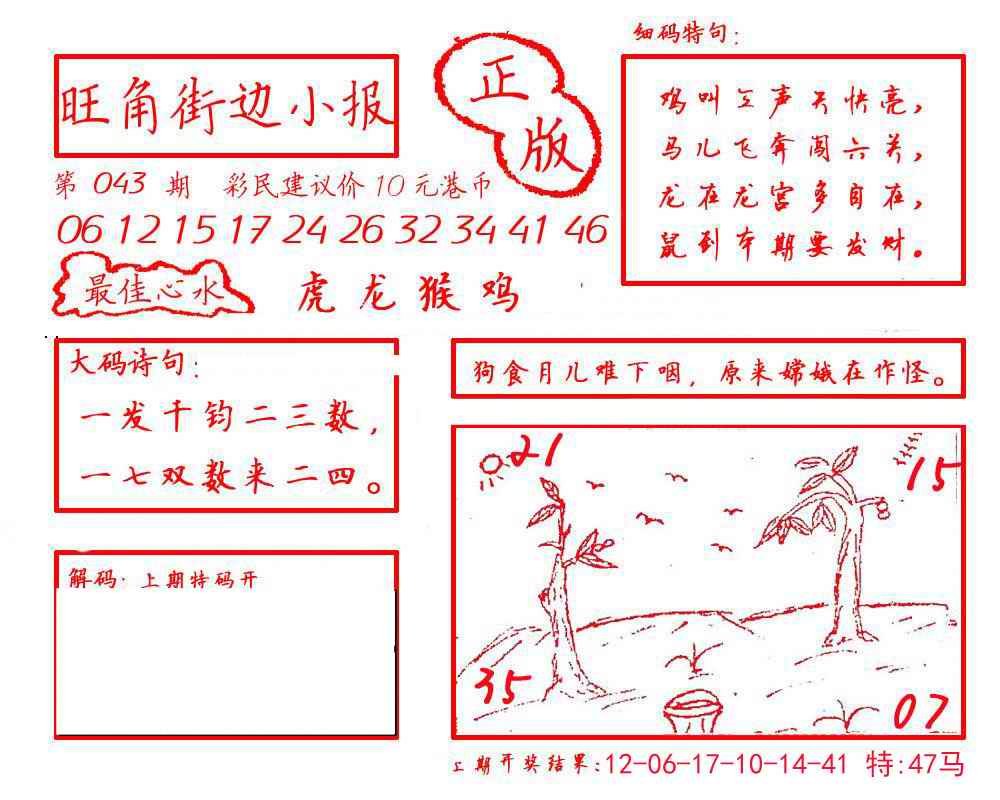 旺角街边小报
正版
第 043 期 彩民建议价10元港币
06 12 15 17 24 26 32 34 41 46
最佳心水 虎龙猴鸡
细码特句：
鸡叫三声天快亮，
马儿飞奔闯六关，
龙在龙宫多自在，
鼠到本期要发财。
大码诗句：
一发千钧二三数，
一七双数来二四。
解码·上期特码开
狗食月儿难下咽，原来嫦娥在作怪。
21
15
35
07
上期开奖结果：12-06-17-10-14-41 特：47马